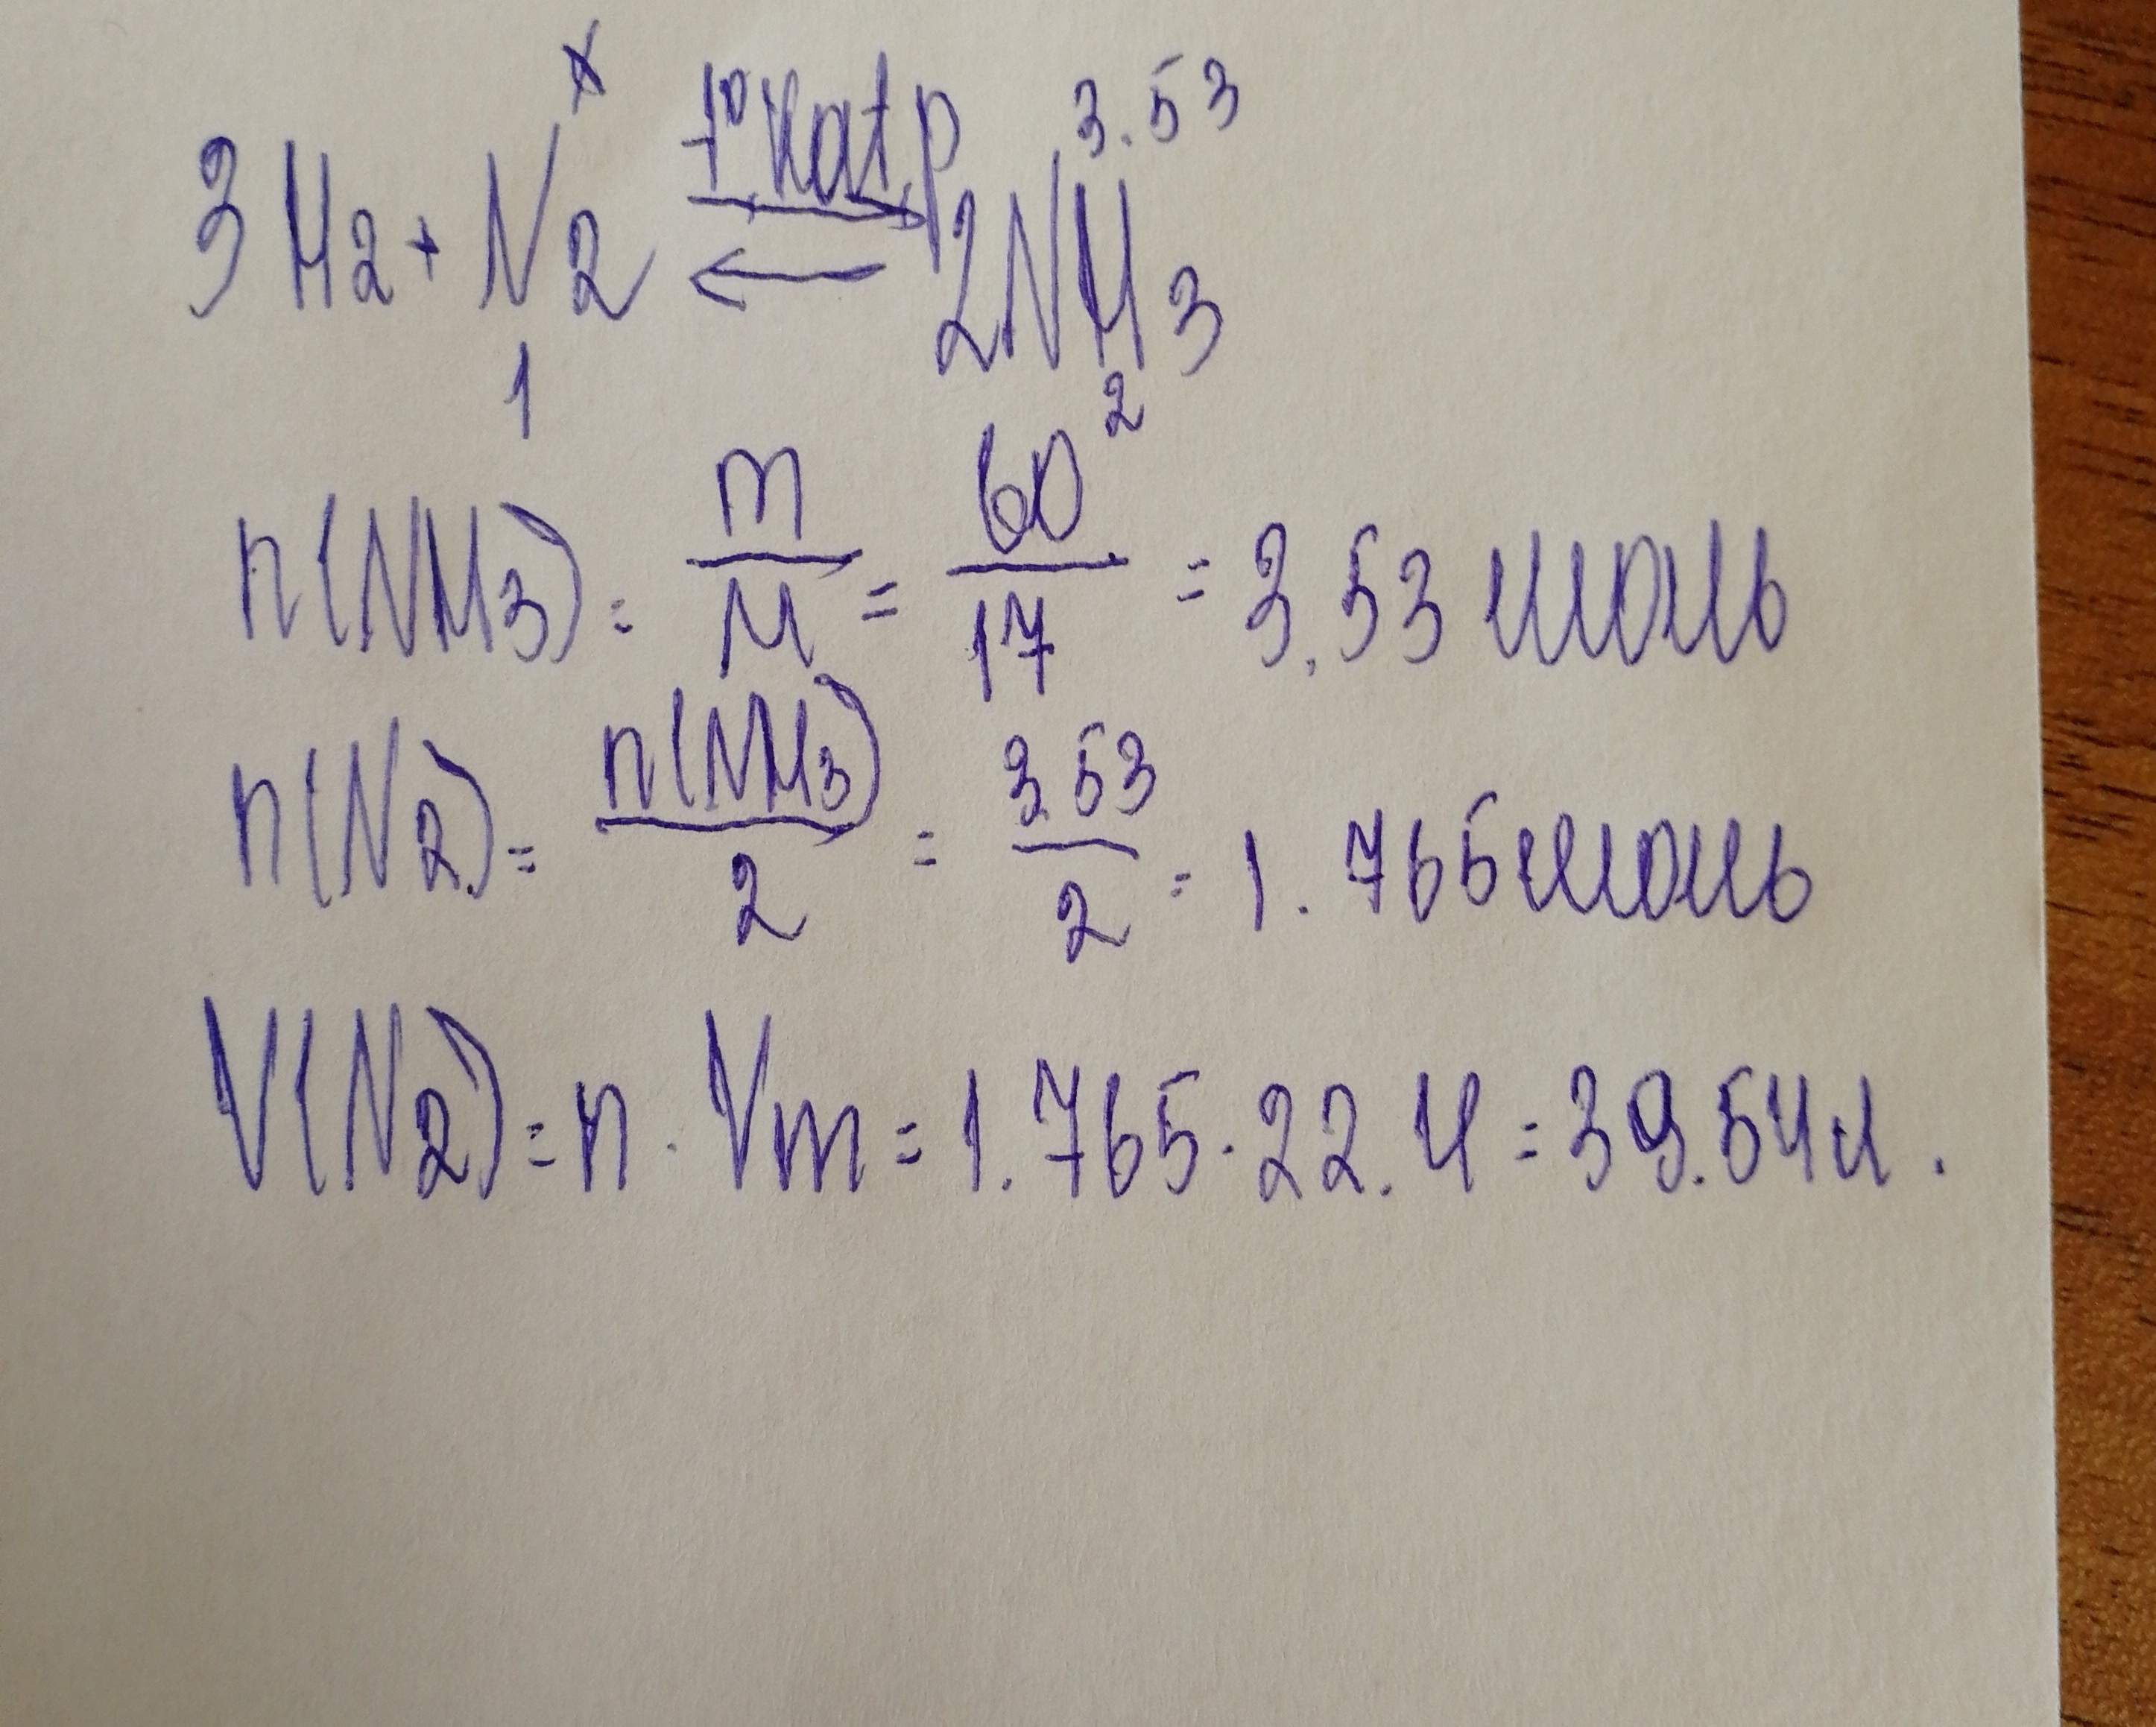 x t° kat, p 3.53
3H2 + N2 ⇄ 2NH3
1 2
n(NH3) = m/M = 60/17 = 3.53 моль
n(N2) = n(NH3)/2 = 3.53/2 = 1.765 моль
V(N2) = n · Vm = 1.765 · 22.4 = 39.54 л.